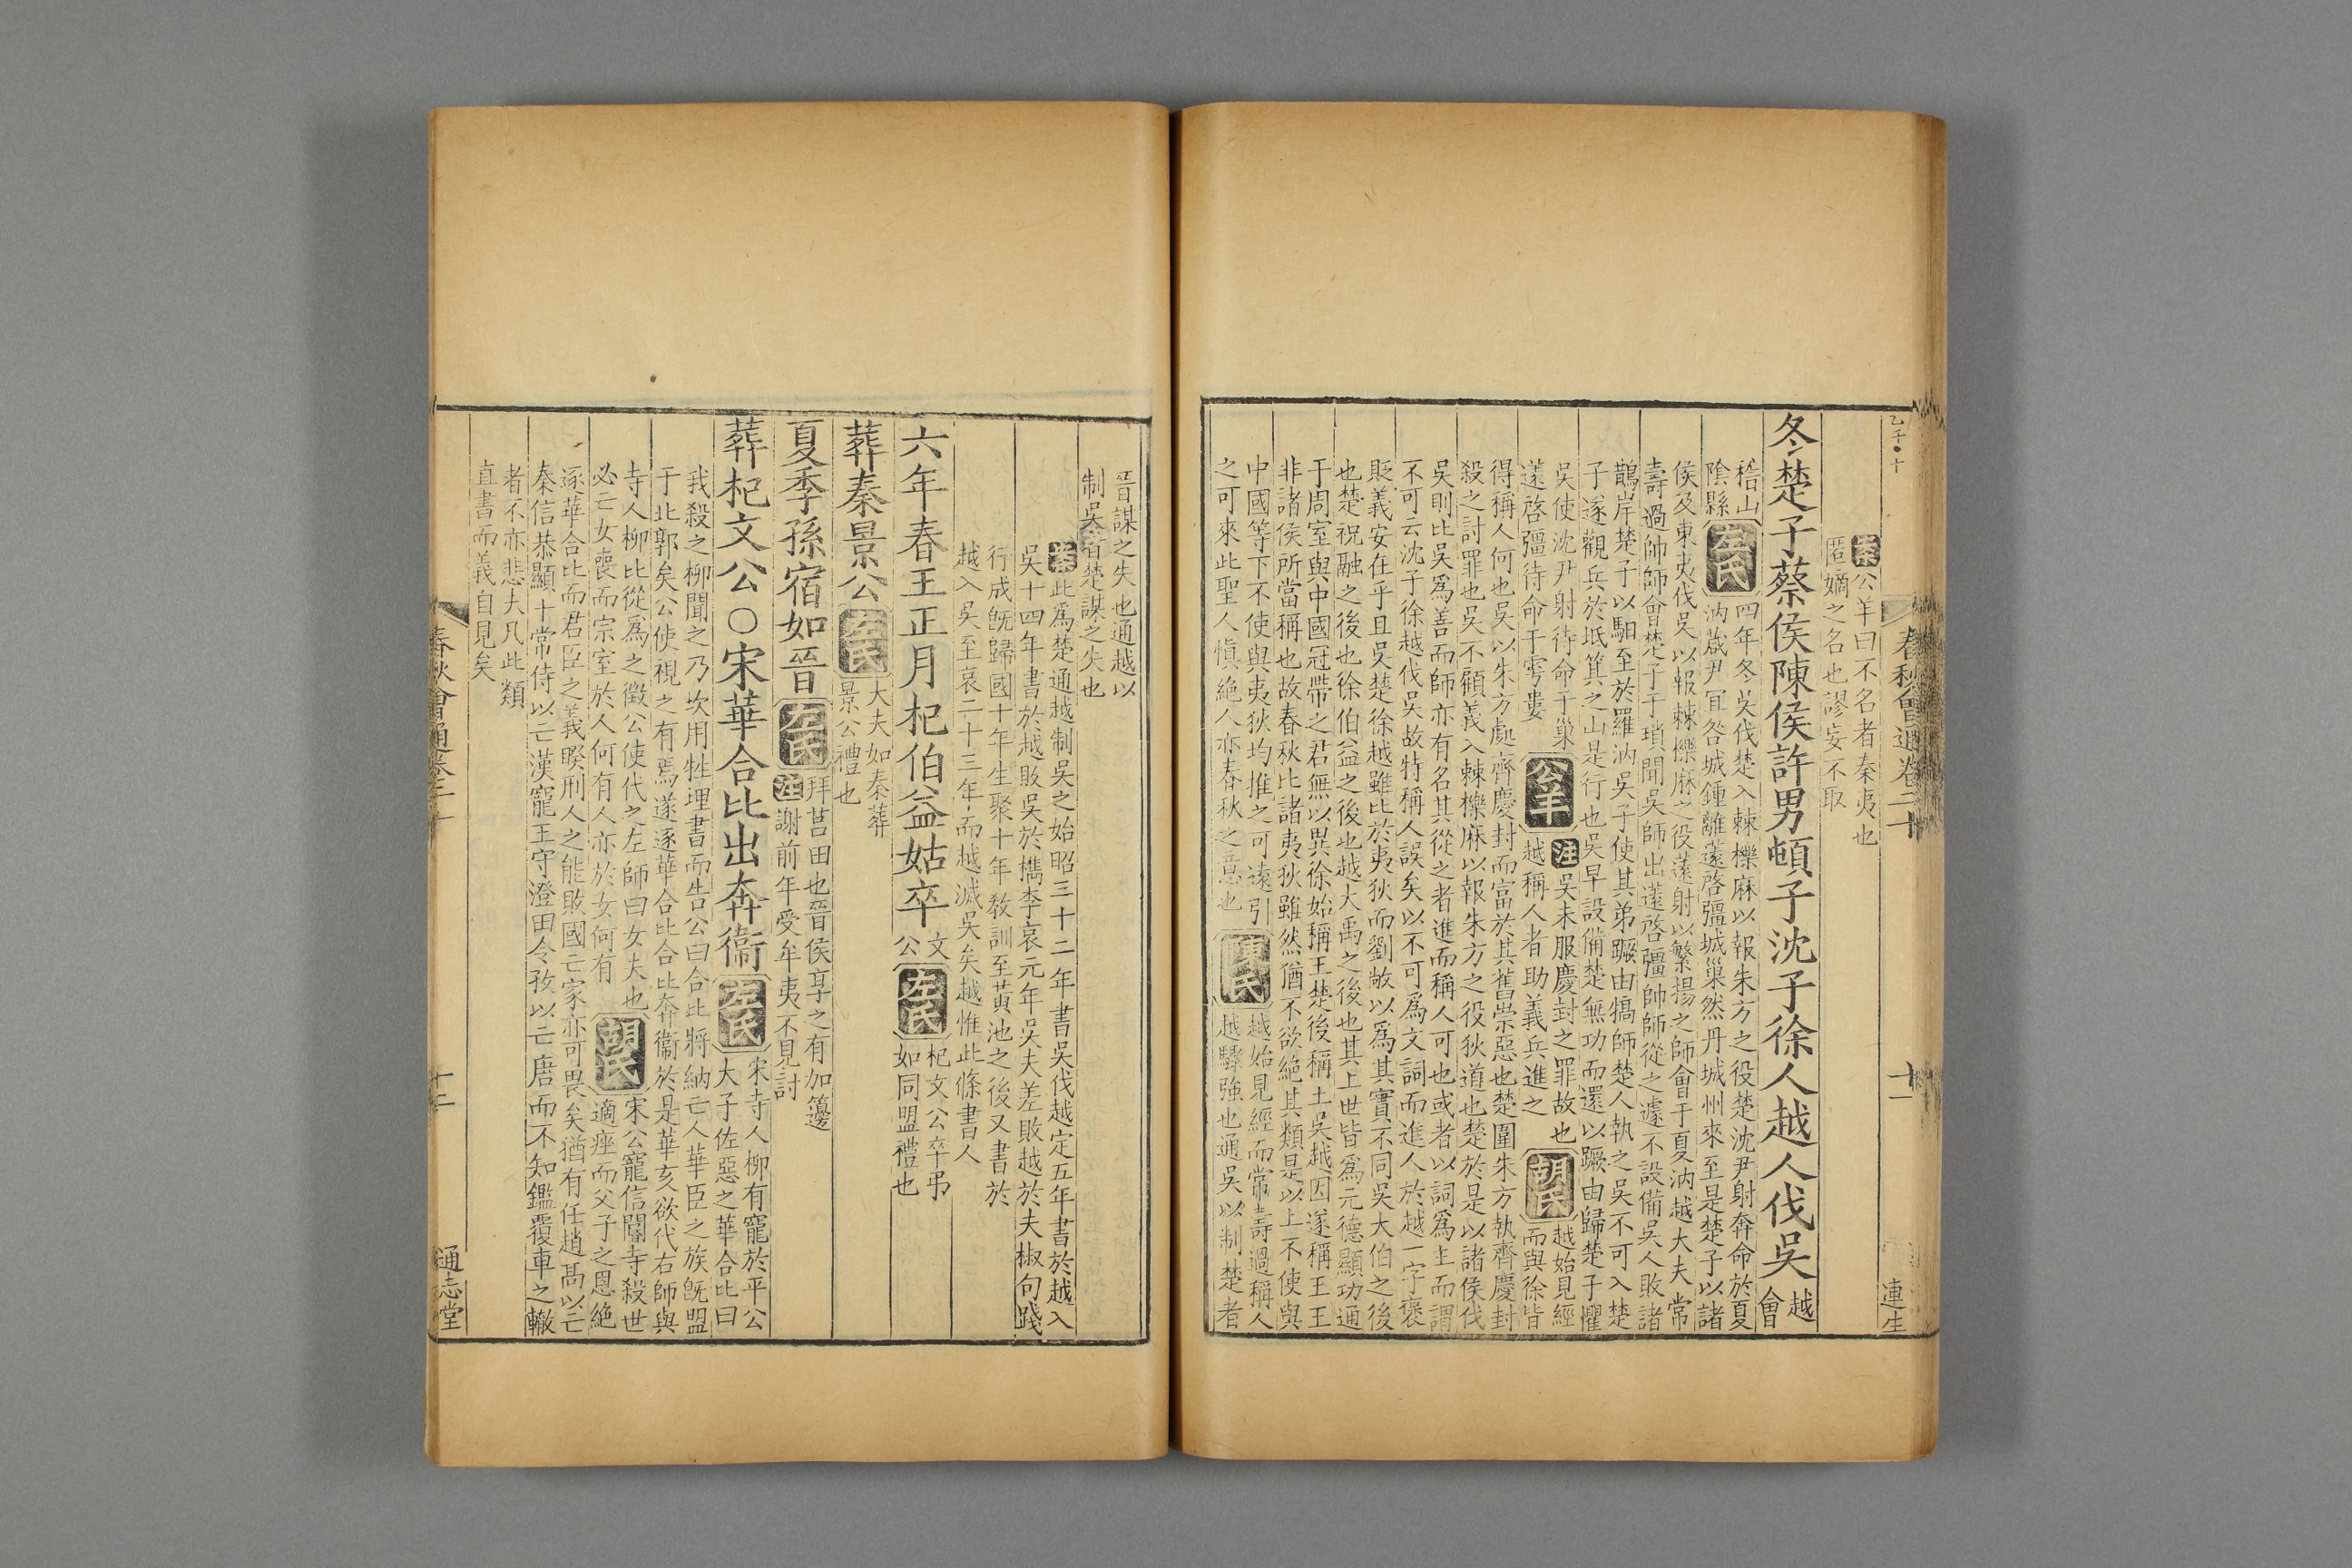 春秋會通卷二十
十一
連生
案公羊曰不名者秦夷也
匿嫡之名也謬妄不取
冬楚子蔡侯陳侯許男頓子沈子徐人越人伐吳
越
會
稽山
陰縣
左氏
四年冬吳伐楚入棘櫟麻以報朱方之役楚沈尹射奔命於夏
汭葴尹宜咎城鍾離薳啓彊城巢然丹城州來至是楚子以諸
侯及東夷伐吳以報棘櫟麻之役薳射以繁揚之師會于夏汭越大夫常
壽過帥師會楚子于瑣聞吳師出薳啓彊帥師從之遽不設備吳人敗諸
鵲岸楚子以馹至於羅汭吳子使其弟蹶由犒師楚人執之吳不可入楚
子遂觀兵於坻箕之山是行也吳早設備楚無功而還以蹶由歸楚子懼
吳使沈尹射待命于巢
薳啓彊待命于雩婁
公羊
注吳未服慶封之罪故也
越稱人者助義兵進之
胡氏
越始見經
而與徐皆
得稱人何也吳以朱方處齊慶封而富於其舊崇惡也楚圍朱方執齊慶封
殺之討罪也吳不顧義入棘櫟麻以報朱方之役狄道也楚於是以諸侯伐
吳則比吳爲善而師亦有名其從之者進而稱人可也或者以詞爲主而謂
不可云沈子徐越伐吳故特稱人誤矣以不可爲文詞而進人於越一字褒
貶義安在乎且吳楚徐越雖比於夷狄而劉敞以爲其實不同吳大伯之後
也楚祝融之後也徐伯益之後也越大禹之後也其上世皆爲元德顯功通
于周室與中國冠帶之君無以異徐始稱王楚後稱王吳越因遂稱王王
非諸侯所當稱也故春秋比諸夷狄雖然猶不欲絶其類是以上不使與
中國等下不使與夷狄均推之可遠引
之可來此聖人愼絶人亦春秋之意也
陳氏
越始見經而常壽過稱人
越驟強也通吳以制楚者
晉謀之失也通越以
制吳者楚謀之失也
案此爲楚通越制吳之始昭三十二年書吳伐越定五年書於越入
吳十四年書於越敗吳於檇李哀元年吳夫差敗越於夫椒句踐
行成旣歸國十年生聚十年敎訓至黃池之後又書於
越入吳至哀二十三年而越滅吳矣越惟此條書人
六年春王正月杞伯益姑卒
文
公
左氏
杞文公卒弔
如同盟禮也
葬秦景公
左氏
大夫如秦葬
景公禮也
夏季孫宿如晉
左氏
拜莒田也晉侯享之有加籩
注謝前年受牟夷不見討
葬杞文公○宋華合比出奔衞
左氏
宋寺人柳有寵於平公
大子佐惡之華合比曰
我殺之柳聞之乃坎用牲埋書而告公曰合比將納亡人華臣之族旣盟
于北郭矣公使視之有焉遂逐華合比合比奔衞於是華亥欲代右師與
寺人柳比從爲之徵公使代之左師曰女夫也
必亡女喪而宗室於人何有人亦於女何有
胡氏
宋公寵信閽寺殺世
適痤而父子之恩絶
逐華合比而君臣之義睽刑人之能敗國亡家亦可畏矣猶有任趙高以亡
秦信恭顯十常侍以亡漢寵王守澄田令孜以亡唐而不知鑑覆車之轍
者不亦悲夫凡此類
直書而義自見矣
春秋會通卷二十
十二
通志堂